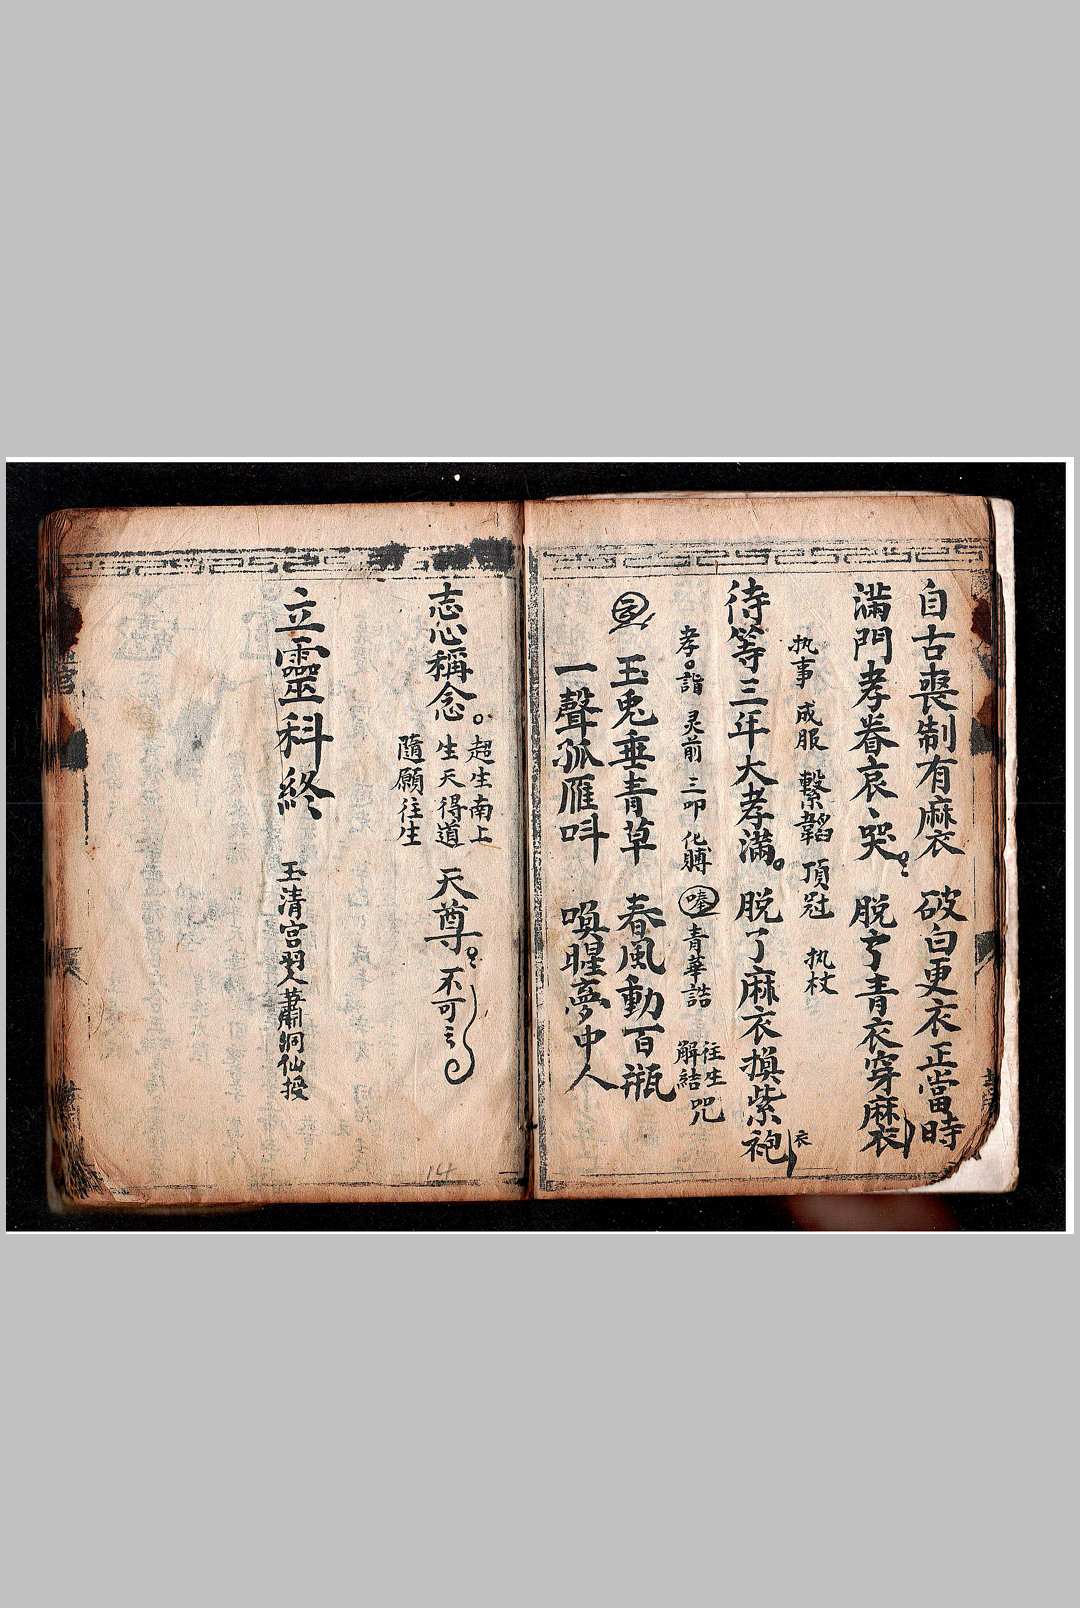 自古喪制有麻衣　破白更衣正當時
滿門孝眷哀〻哭　脱了青衣穿麻衣
执事　成服　繫韜　頂冠　执杖
待等三年大孝滿　脱了麻衣換紫袍
衣
孝〻詣　灵前　三叩　化賻　嗪　青華誥　往生　解結　咒
玉兎垂青草　春風動百瓶
一聲孤雁呌　喚醒夢中人
志心稱念　超生南上　生天得道　隨願往生　天尊　不可〻
立靈科終　玉清宫弟人蕭洞仙授
14